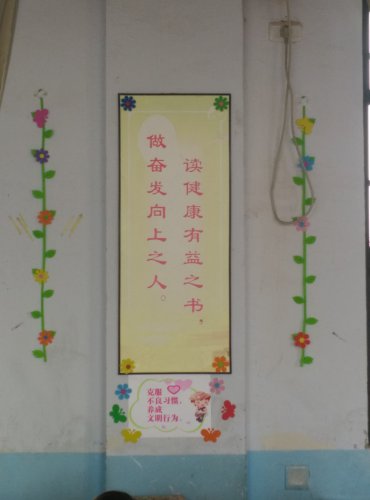 读健康有益之书，
做奋发向上之人。
克服
不良习惯，
养成
文明行为。